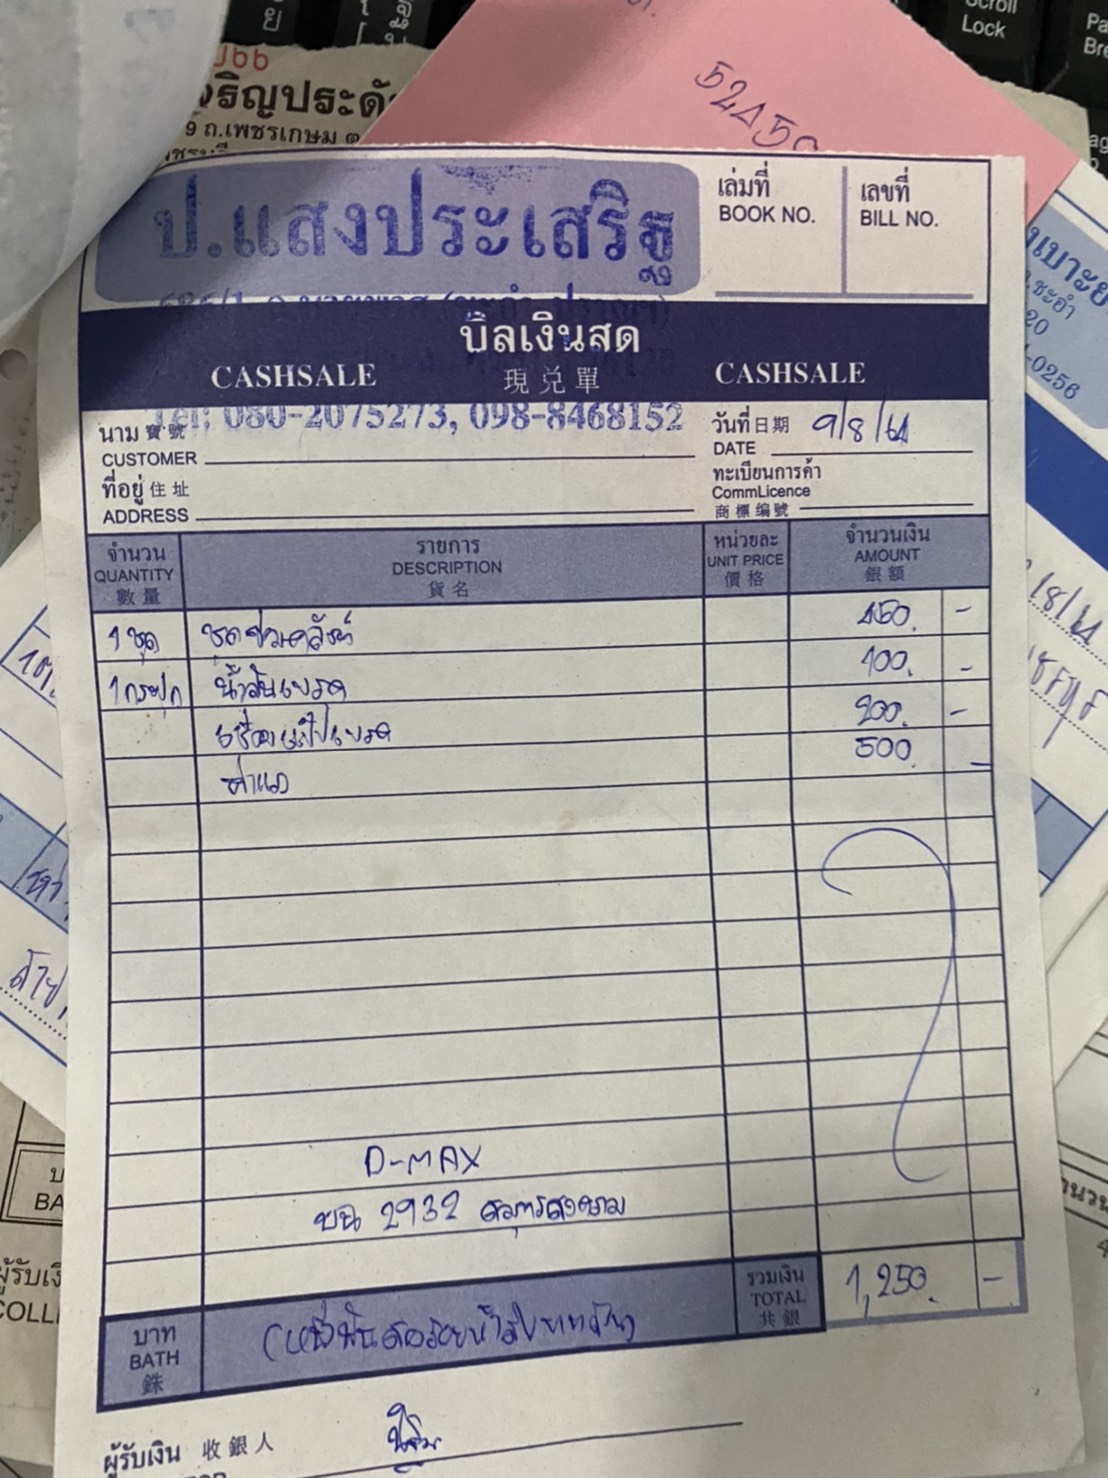 ป.แสงประเสริฐ
เล่มที่
BOOK NO.
เลขที่
BILL NO.
บิลเงินสด
CASHSALE 現兌單 CASHSALE
Tel: 080-2075273, 098-8468152
นาม 寶號
CUSTOMER
วันที่ 日期 9/8/61
DATE
ที่อยู่ 住址
ADDRESS
ทะเบียนการค้า
CommLicence
商標編號
จำนวน
QUANTITY
數量
รายการ
DESCRIPTION
貨名
หน่วยละ
UNIT PRICE
價格
จำนวนเงิน
AMOUNT
銀額
1 ชุด ชุดซ่อมคลัทช์ 450. -
1 กระปุก น้ำมันเบรค 100. -
200. -
ค่าแรง 500 -
D-MAX
บฉ 2932 สมุทรสงคราม
รวมเงิน
TOTAL
共銀
1,250. -
บาท
BATH
銖
(หนึ่งพันสองร้อยห้าสิบบาทถ้วน)
ผู้รับเงิน 收銀人
จริญประดั
9 ถ.เพชรเกษม
52450
Scroll
Lock